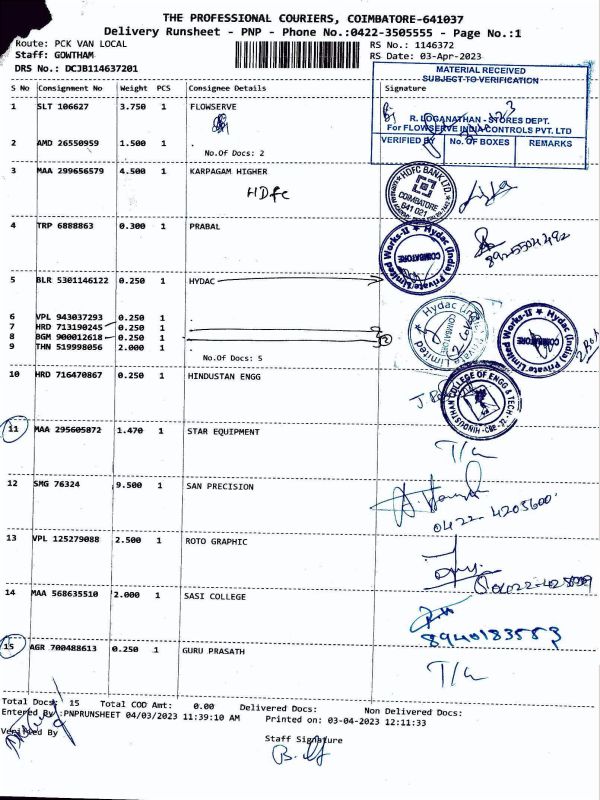 THE PROFESSIONAL COURIERS, COIMBATORE-641037
Delivery Runsheet - PNP - Phone No.:0422-3505555 - Page No.:1
Route: PCK VAN LOCAL
RS No.: 1146372
Staff: GOWTHAM
RS Date: 03-Apr-2023
DRS No.: DCJB114637201
MATERIAL RECEIVED
SUBJECT TO VERIFICATION
S No Consignment No Weight PCS Consignee Details Signature
1 SLT 106627 3.750 1 FLOWSERVE
R. LOGANATHAN - STORES DEPT.
For FLOWSERVE INDIA CONTROLS PVT. LTD
VERIFIED BY No. OF BOXES REMARKS
2 AMD 26550959 1.500 1 .
No.Of Docs: 2
3 MAA 299656579 4.500 1 KARPAGAM HIGHER
HDFC
HDFC BANK LTD.
COIMBATORE
641 021
4 TRP 6888863 0.300 1 PRABAL
Hydac (India) Private Limited Works-II
COIMBATORE
5 BLR 5301146122 0.250 1 HYDAC
6 VPL 943037293 0.250 1 .
7 HRD 713190245 0.250 1
8 BGM 900012618 0.250 1
9 THN 519998056 2.000 1 .
No.Of Docs: 5
Hydac (India) Private Limited Works-II
COIMBATORE
10 HRD 716470867 0.250 1 HINDUSTAN ENGG
HINDUSTHAN COLLEGE OF ENGG & TECH
CBE-32
11 MAA 295605872 1.470 1 STAR EQUIPMENT
12 SMG 76324 9.500 1 SAN PRECISION
0422-4205600
13 VPL 125279088 2.500 1 ROTO GRAPHIC
14 MAA 568635510 2.000 1 SASI COLLEGE
8940183583
15 AGR 700488613 0.250 1 GURU PRASATH
Total Docs: 15 Total COD Amt: 0.00 Delivered Docs: Non Delivered Docs:
Entered By :PNPRUNSHEET 04/03/2023 11:39:10 AM Printed on: 03-04-2023 12:11:33
Verified By
Staff Signature